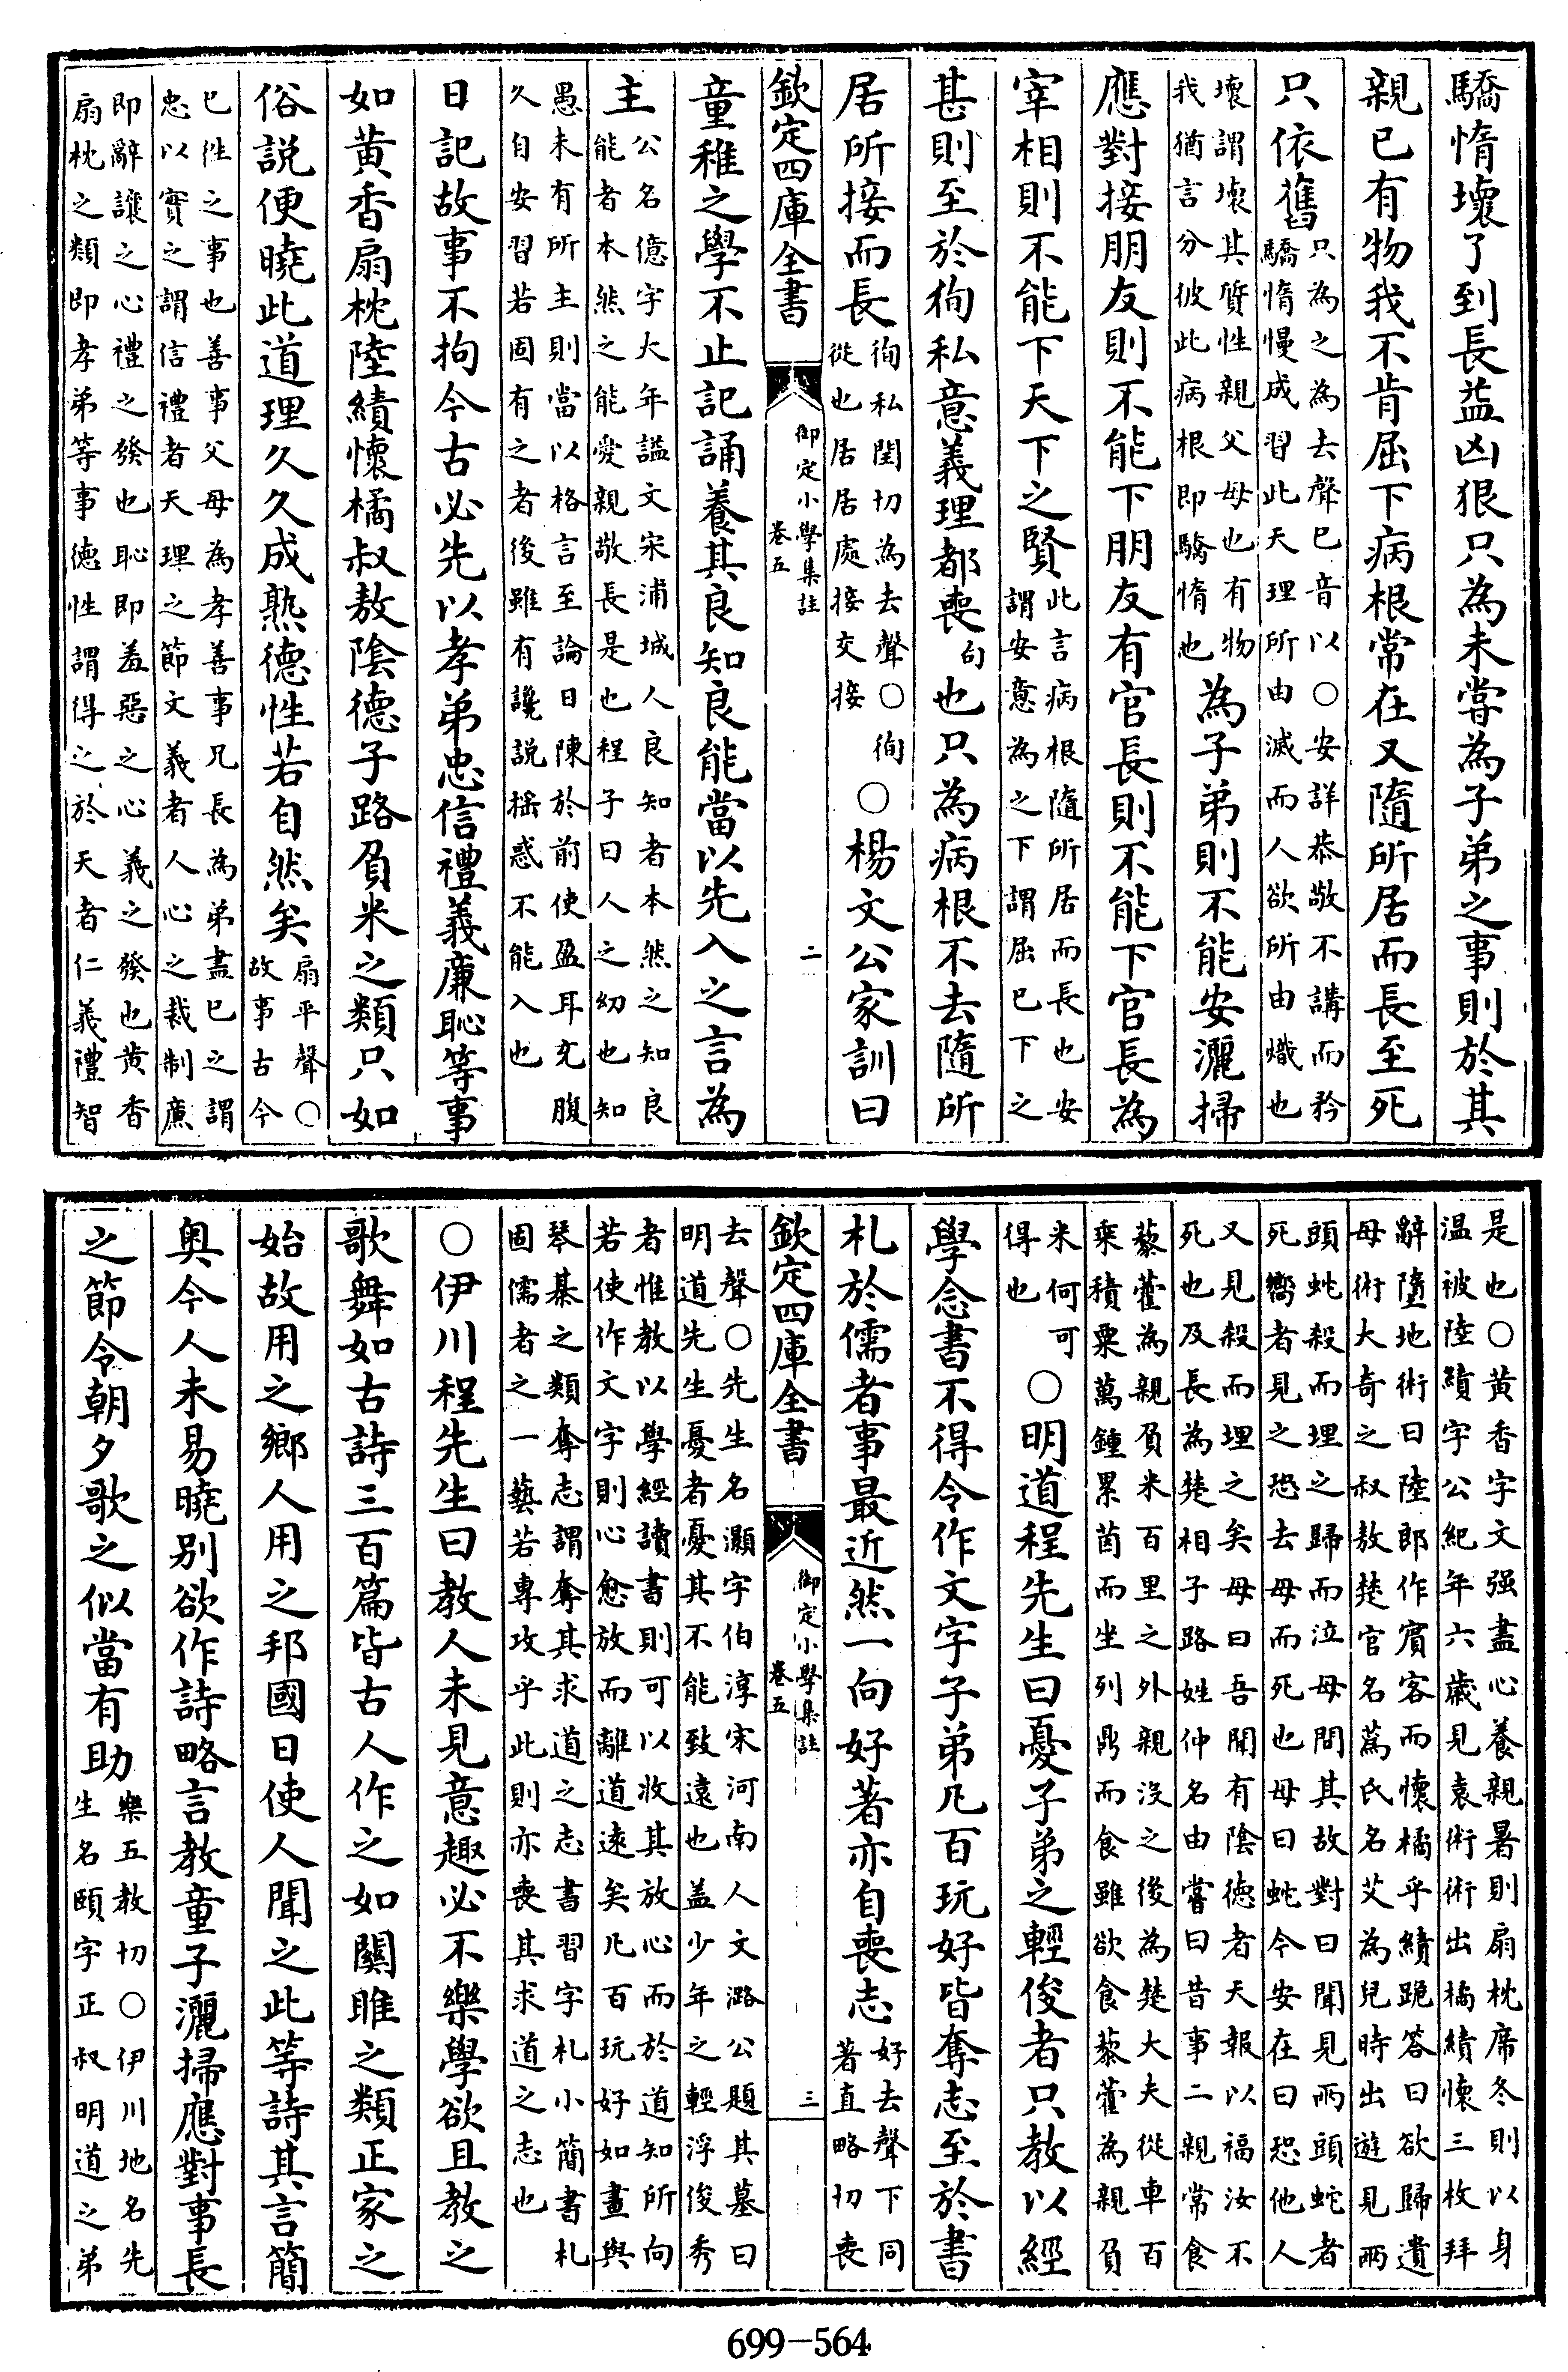 驕惰壞了到長益凶狠只為未嘗為子弟之事則於其
親已有物我不肯屈下病根常在又隨所居而長至死
只依舊只為之為去聲已音以○安詳恭敬不講而矜驕惰慢成習此天理所由滅而人欲所由熾也
壞謂壞其質性親父母也有物我猶言分彼此病根即驕惰也為子弟則不能安灑掃
應對接朋友則不能下朋友有官長則不能下官長為
宰相則不能下天下之賢此言病根隨所居而長也安謂安意為之下謂屈已下之
甚則至於徇私意義理都喪句也只為病根不去隨所
居所接而長徇私閏切為去聲○徇從也居居處接交接○楊文公家訓曰
欽定四庫全書
御定小學集註
卷五
二
童稚之學不止記誦養其良知良能當以先入之言為
主公名億字大年謚文宋浦城人良知者本然之知良能者本然之能愛親敬長是也程子曰人之幼也知
愚未有所主則當以格言至論日陳於前使盈耳充腹
久自安習若固有之者後雖有讒説揺惑不能入也
日記故事不拘今古必先以孝弟忠信禮義廉恥等事
如黃香扇枕陸績懷橘叔敖陰德子路負米之類只如
俗説便曉此道理久久成熟德性若自然矣扇平聲○故事古今
已徃之事也善事父母為孝善事兄長為弟盡已之謂
忠以實之謂信禮者天理之節文義者人心之裁制廉
即辭讓之心禮之發也恥即羞惡之心義之發也黃香
扇枕之類即孝弟等事德性謂得之於天者仁義禮智
是也○黃香字文强盡心養親暑則扇枕席冬則以身
温被陸績字公紀年六歳見袁術術出橘績懷三枚拜
辭墮地術曰陸郎作賓客而懷橘乎績跪答曰欲歸遺
母術大奇之叔敖楚官名蒍氏名艾為兒時出遊見兩
頭蛇殺而埋之歸而泣母問其故對曰聞見兩頭蛇者
死嚮者見之恐去母而死也母曰蛇今安在曰恐他人
又見殺而埋之矣母曰吾聞有陰德者天報以福汝不
死也及長為楚相子路姓仲名由嘗曰昔事二親常食
藜藿為親負米百里之外親沒之後為楚大夫從車百
乘積粟萬鍾累茵而坐列鼎而食雖欲食藜藿為親負
米何可得也○明道程先生曰憂子弟之輕俊者只教以經
學念書不得令作文字子弟凡百玩好皆奪志至於書
札於儒者事最近然一向好著亦自喪志好去聲下同著直略切喪
欽定四庫全書
御定小學集註
卷五
三
去聲○先生名灝字伯淳宋河南人文潞公題其墓曰
明道先生憂者憂其不能致遠也盖少年之輕浮俊秀
者惟教以學經讀書則可以收其放心而於道知所向
若使作文字則心愈放而離道遠矣凡百玩好如畫與
琴棊之類奪志謂奪其求道之志書習字札小簡書札
固儒者之一藝若專攻乎此則亦喪其求道之志也
○伊川程先生曰教人未見意趣必不樂學欲且教之
歌舞如古詩三百篇皆古人作之如關雎之類正家之
始故用之鄉人用之邦國日使人聞之此等詩其言簡
奥今人未易曉别欲作詩略言教童子灑掃應對事長
之節令朝夕歌之似當有助樂五教切○伊川地名先生名頤字正叔明道之弟
699-564